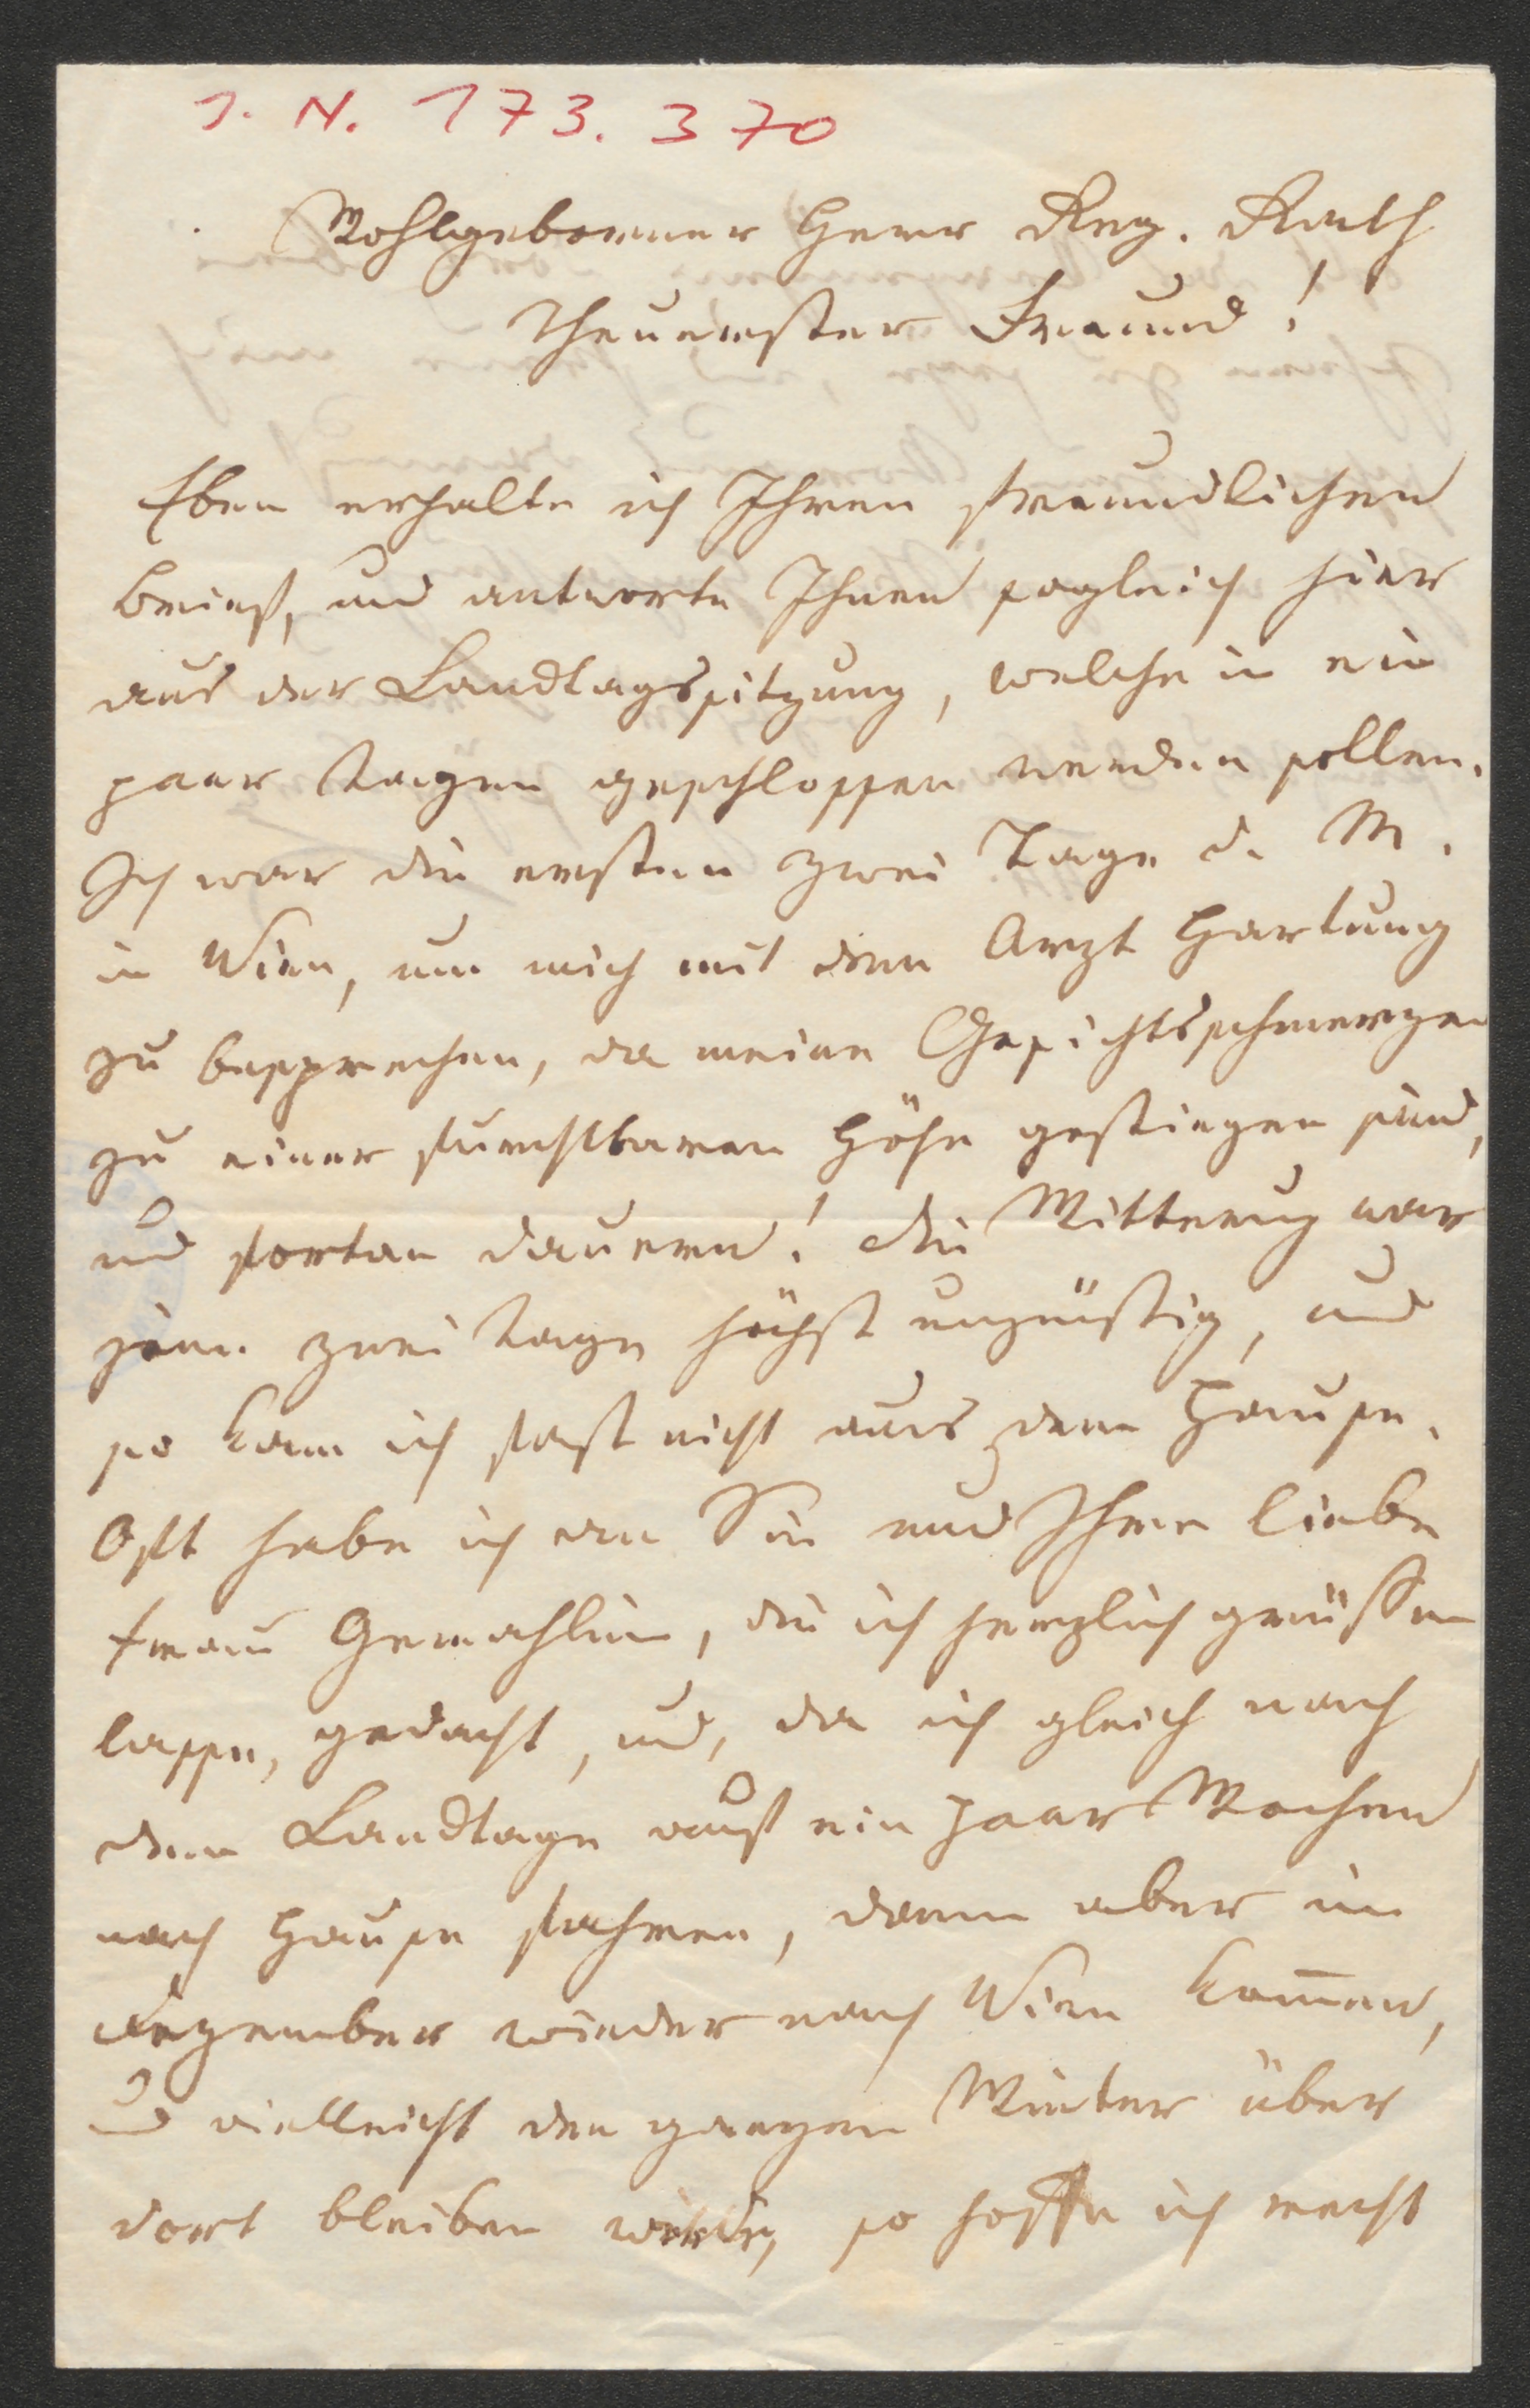 J. N. 173.370
Wohlgeborner Herr Reg. Rath
Theuerster Freund!
Eben erhalte ich Ihren freundlichen
Brief, und antworte Ihnen sogleich hier
aus der Landtagssitzung, welche in ein
paar Tagen geschlossen werden sollen.
Ich war die ersten zwei Tage d. M.
in Wien, um mich mit dem Arzt Hartung
zu besprechen, da meine Gesichtsschmerzen
zu einer furchtbaren Höhe gestiegen sind,
und fortan dauern! Die Witterung war
jene zwei Tage höchst ungünstig, und
so kam ich fast nicht aus dem Hause.
Oft habe ich an Sie und Ihre liebe
Frau Gemahlin, die ich herzlich grüßen
lasse, gedacht, und, da ich gleich nach
dem Landtage auf ein paar Wochen
nach Hause fahren, dann aber im
Dezember wieder nach Wien kom̄en,
und vielleicht den ganzen Winter über
dort bleiben werde, so hoffe ich recht